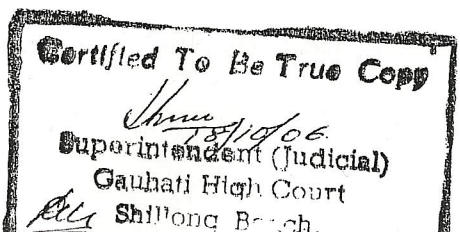 Certified To Be True Copy
18/10/06
Superintendent (Judicial)
Gauhati High Court
Shillong Bench.